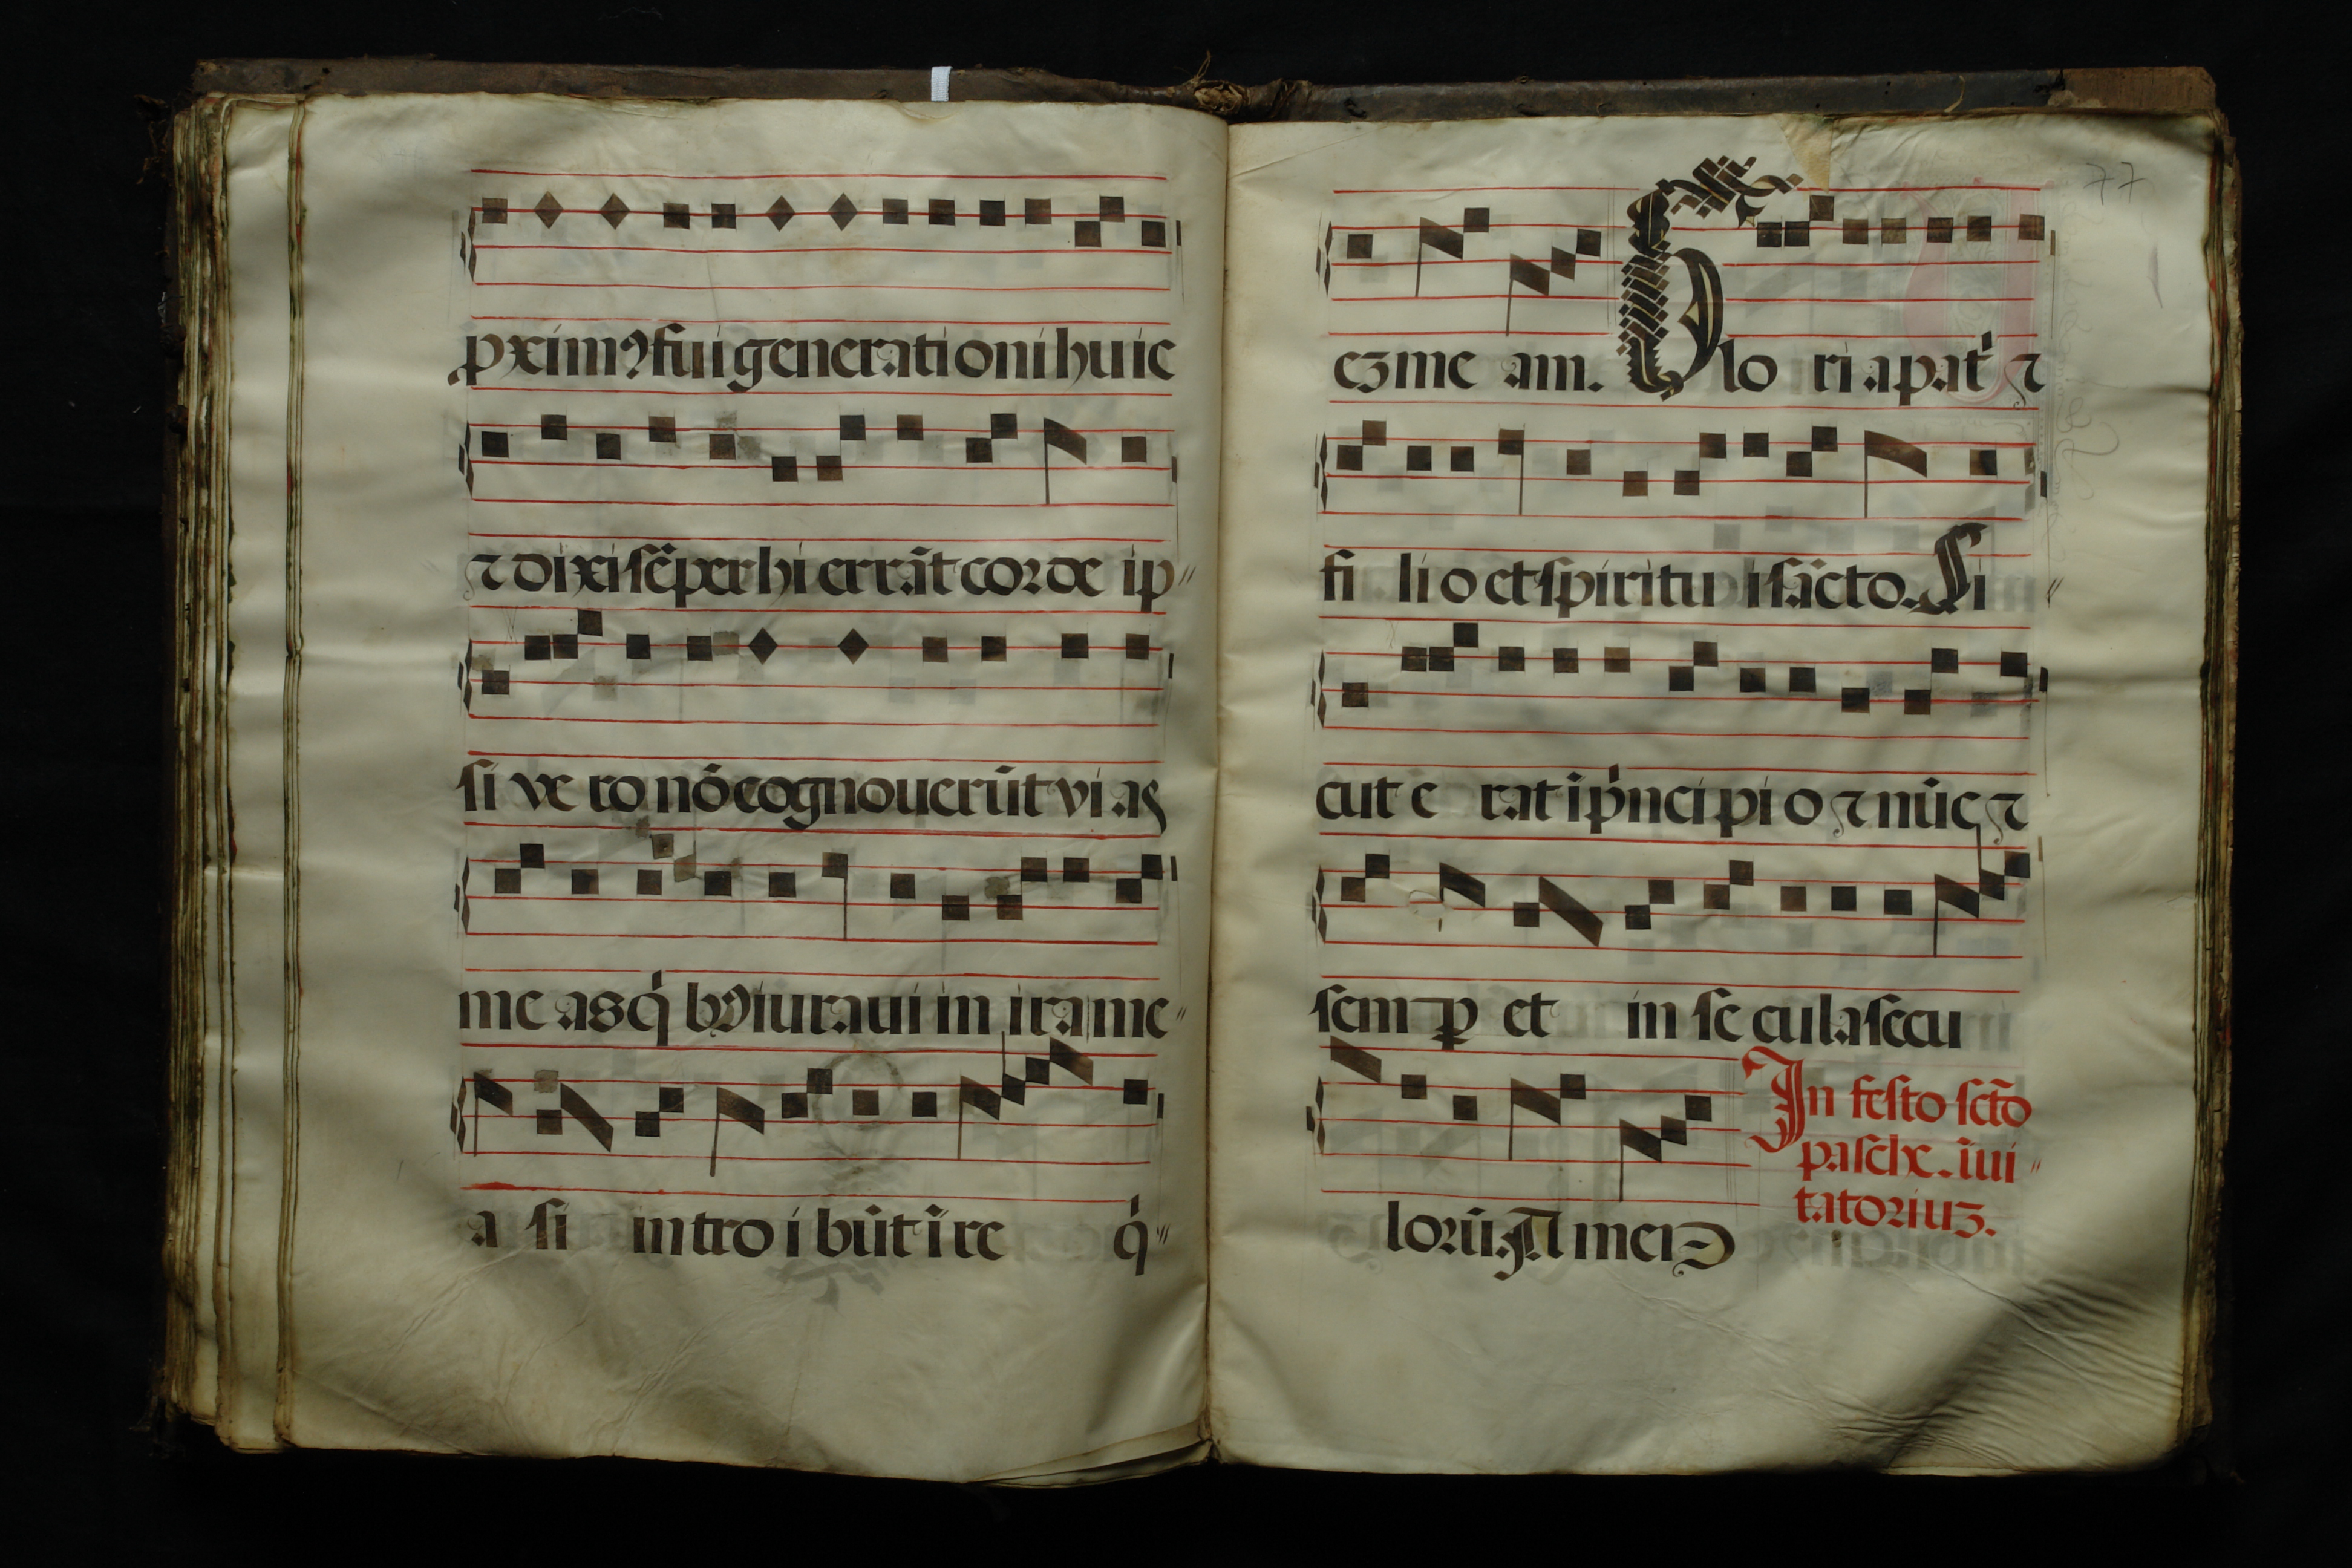 ꝓximꝰ fui generationi huic
⁊ dixi sẽper hi errãt corde ip〃
si vero nõ cognouerũt vias
meas qͥbꝰ iuraui in ira me〃
a si introibũt ĩ re qͥ〃
eʒ meam. Gloria patͥ ⁊
filio et spiritui sãcto. Si〃
cut erat ĩ pͥncipio ⁊ nũc ⁊
semꝑ et in secula secu
lorũ. Amen
77
In festo sctõ
pasche. ĩui〃
tatoriuʒ.